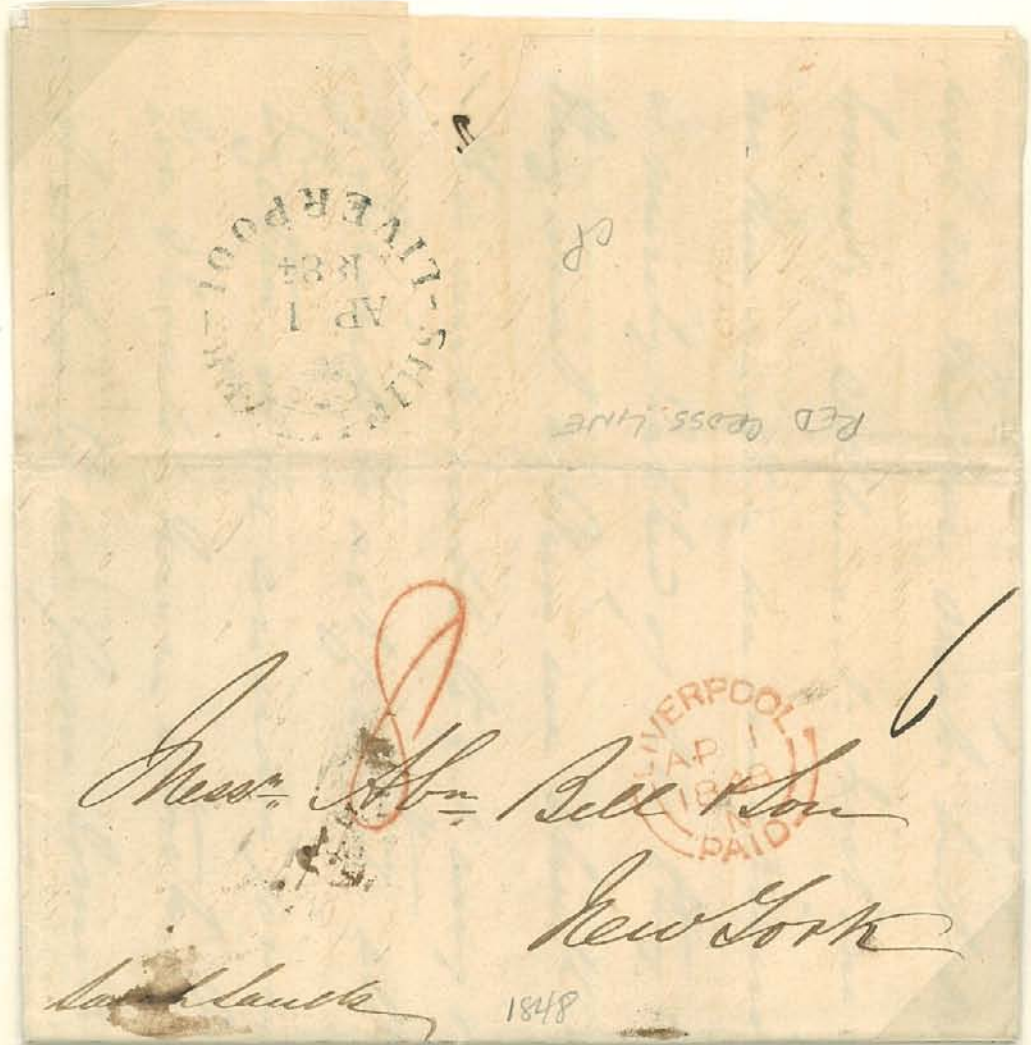 LIVERPOOL
SHIP
AP 1
184
RED CROSS LINE
8
6
LIVERPOOL
AP 1
1848
N
PAID
Messrs. Abm. Bell & Son
New York
Sarah Sands
1848